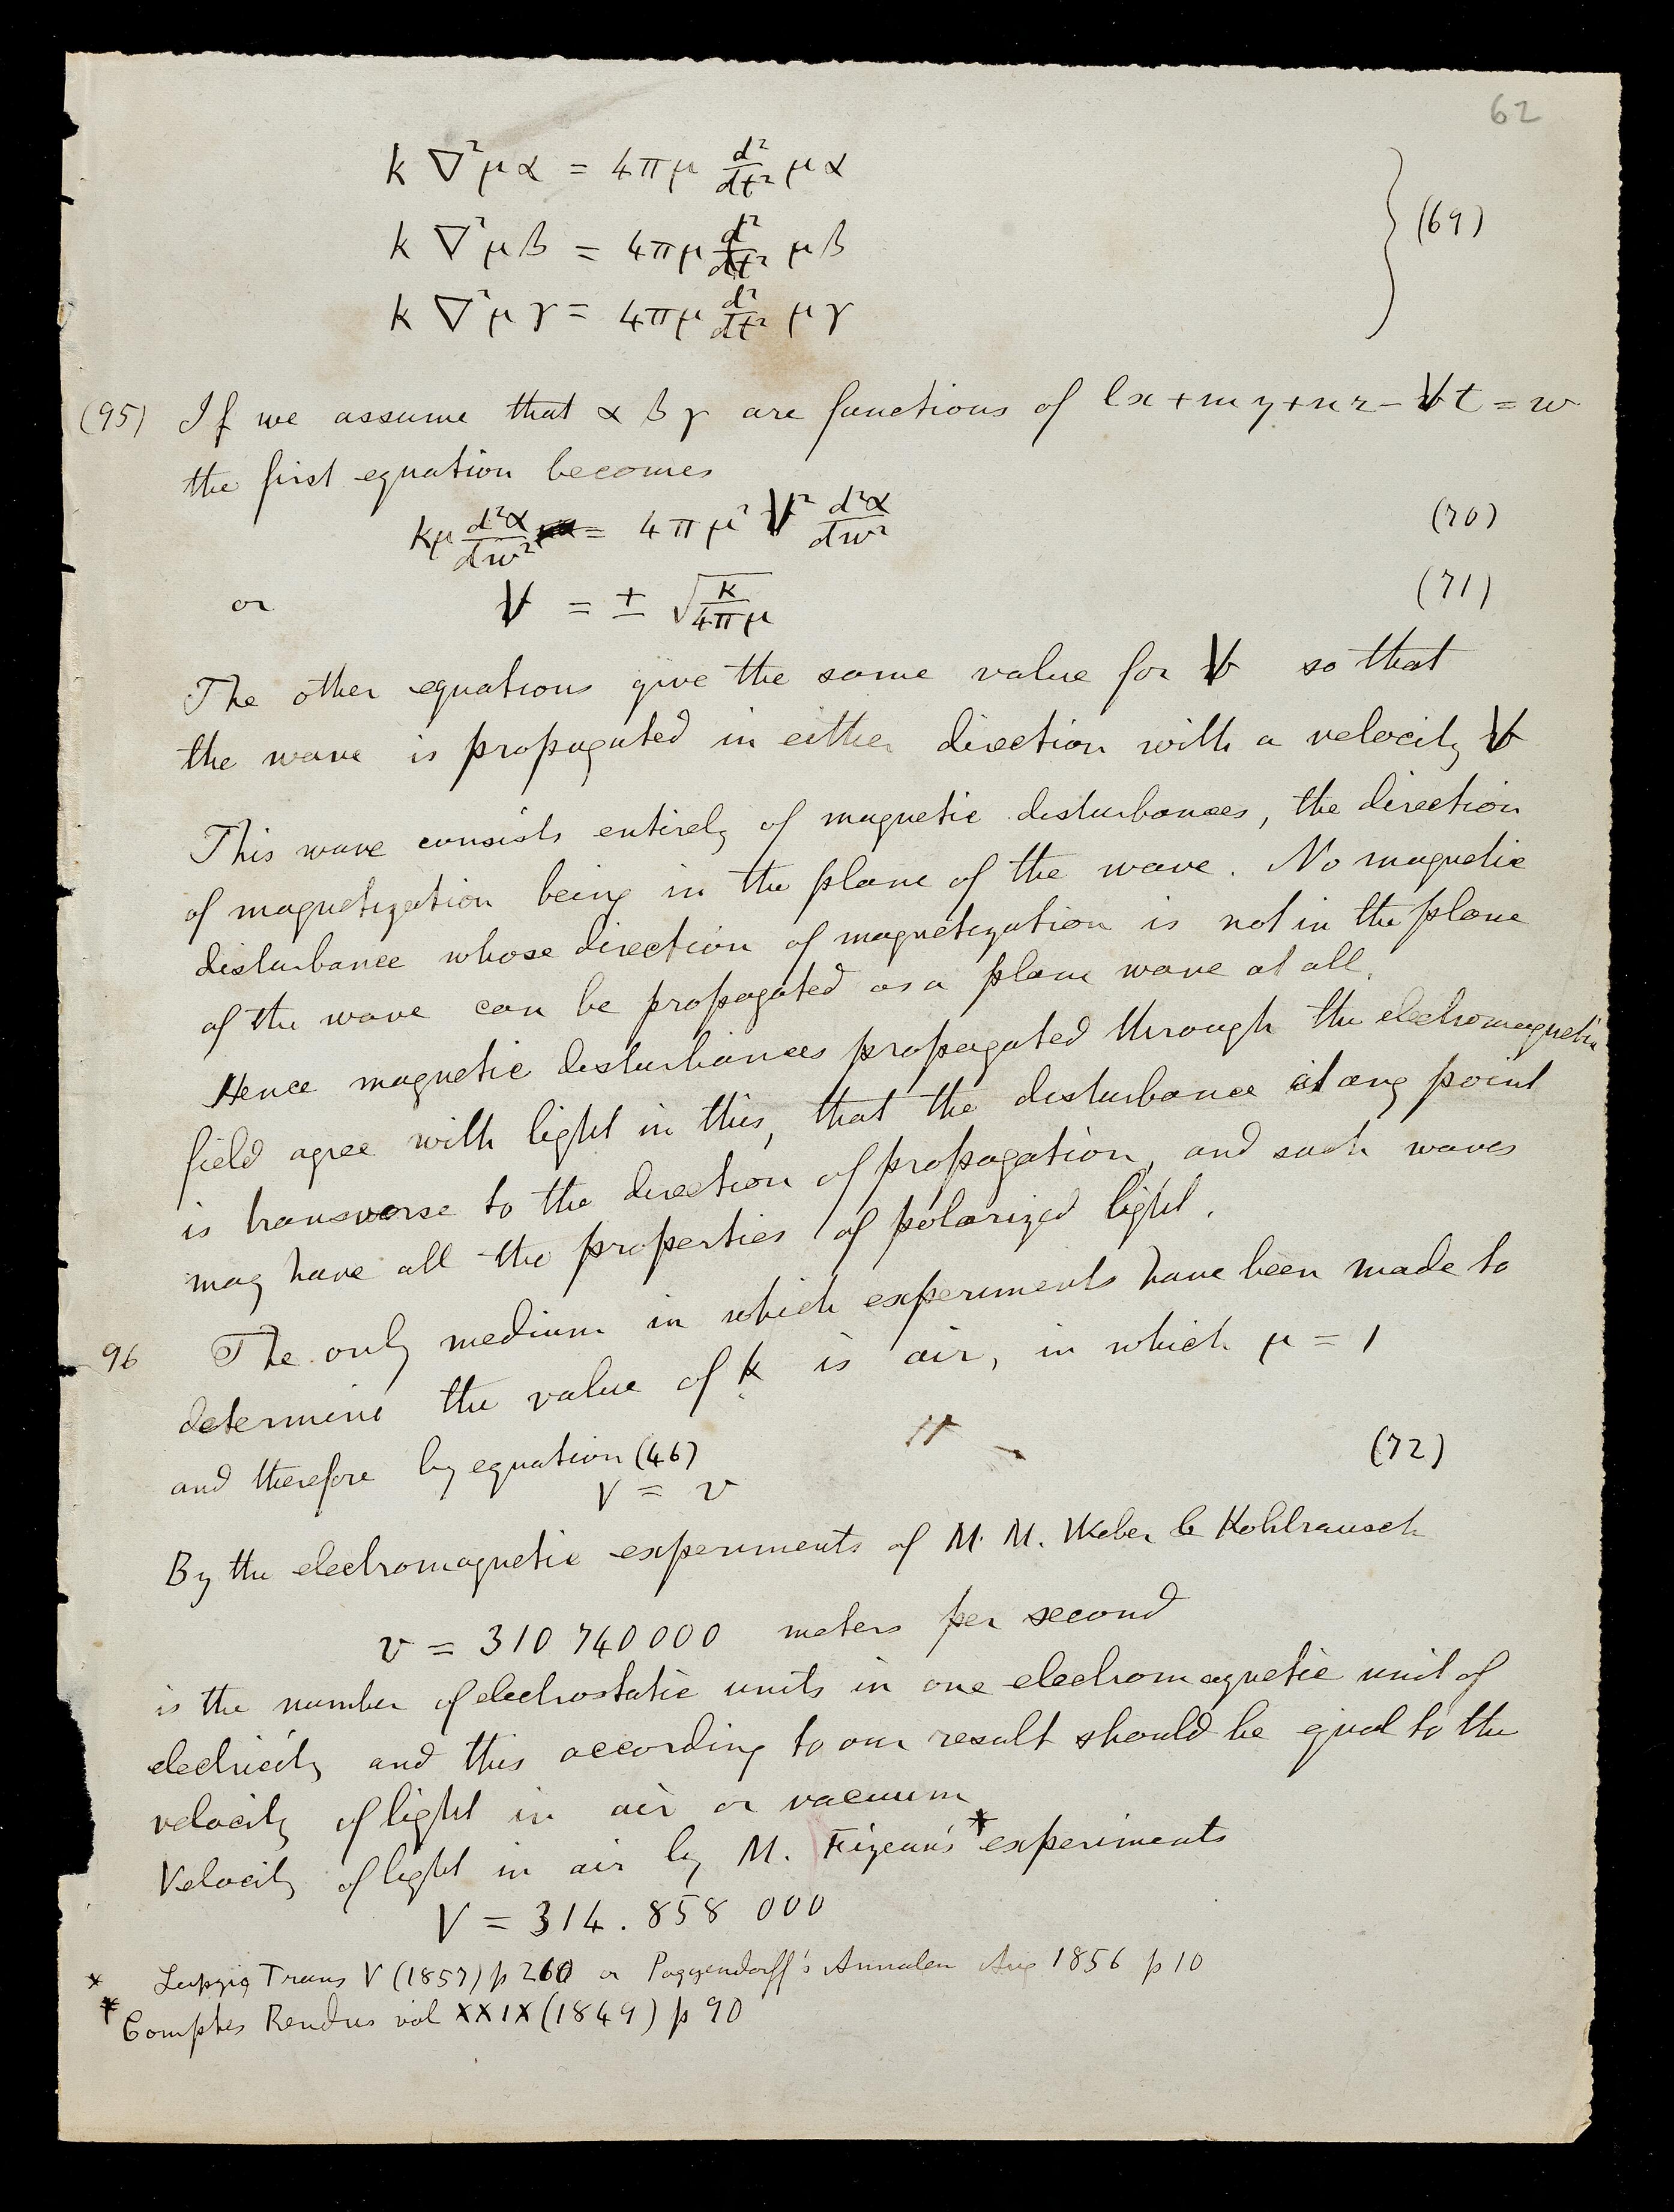 62
k ∇²μα = 4πμ d²/dt² μα
k ∇²μβ = 4πμ d²/dt² μβ } (69)
k ∇²μγ = 4πμ d²/dt² μγ
(95) If we assume that α β γ are functions of lx + my + nz − Vt = w
the first equation becomes
kμ d²α/dw² = 4πμ² V² d²α/dw² (70)
or V = ± √(k/4πμ) (71)
The other equations give the same value for V so that
the wave is propagated in either direction with a velocity V
This wave consists entirely of magnetic disturbances, the direction
of magnetization being in the plane of the wave. No magnetic
disturbance whose direction of magnetization is not in the plane
of the wave can be propagated as a plane wave at all.
Hence magnetic disturbances propagated through the electromagnetic
field agree with light in this, that the disturbance at any point
is transverse to the direction of propagation, and such waves
may have all the properties of polarized light.
96 The only medium in which experiments have been made to
determine the value of k is air, in which μ = 1
and therefore by equation (46)
V = v (72)
By the electromagnetic experiments of M. M. Weber & Kohlrausch
v = 310 740 000 meters per second
is the number of electrostatic units in one electromagnetic unit of
electricity and this according to our result should be equal to the
velocity of light in air or vacuum
Velocity of light in air by M. Fizeau's * experiments
V = 314.858 000
* Leipzig Trans V (1857) p 260 or Poggendorff's Annalen Aug 1856 p 10
* Comptes Rendus vol XXIX (1849) p 90